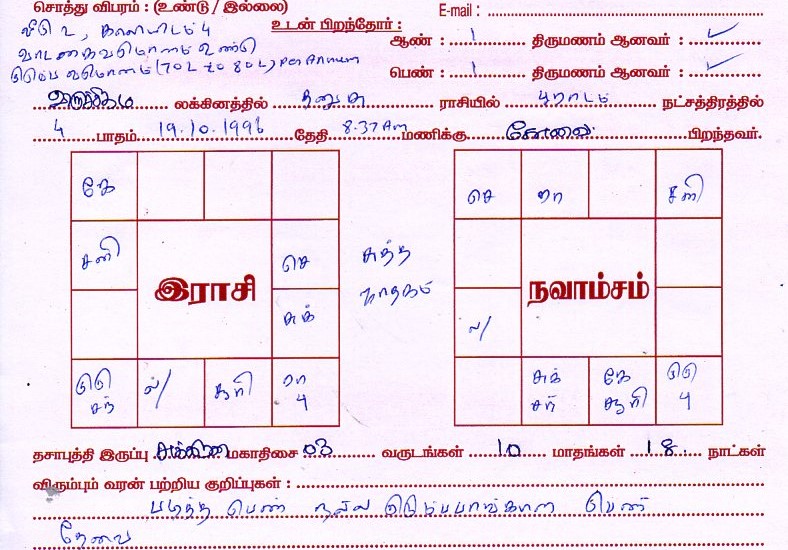 சொத்து விபரம் : (உண்டு / இல்லை) E-mail :
வீடு 2, காலியிடம் 4 உடன் பிறந்தோர் :
வாடகை வருமானம் உண்டு ஆண் : 1 திருமணம் ஆனவர் : ✓
குடும்ப வருமானம் (70L to 80L) Per Annum பெண் : 1 திருமணம் ஆனவர் : ✓
விருச்சிகம் லக்கினத்தில் தனுசு ராசியில் பூராடம் நட்சத்திரத்தில்
4 பாதம் 19.10.1996 தேதி 8.37 Am மணிக்கு கோவை பிறந்தவர்.
கே
சனி செ
இராசி
சுக்
குரு சந் ல/ சூரி ரா பு
சுத்த
ஜாதகம்
செ ரா சனி
நவாம்சம்
ல/
சுக் சந் கே சூரி குரு பு
தசாபுத்தி இருப்பு சுக்கிர மகாதிசை 03 வருடங்கள் 10 மாதங்கள் 18 நாட்கள்
விரும்பும் வரன் பற்றிய குறிப்புகள் :
படித்த பெண் நல்ல குடும்பபாங்கான பெண்
தேவை